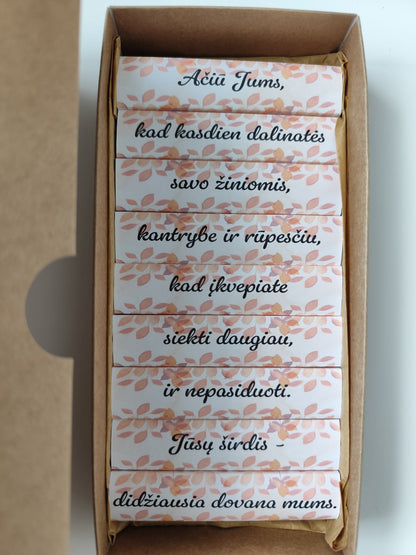 Ačiū Jums,
kad kasdien dalinatės
savo žiniomis,
kantrybe ir rūpesčiu,
kad įkvepiate
siekti daugiau,
ir nepasiduoti.
Jūsų širdis -
didžiausia dovana mums.